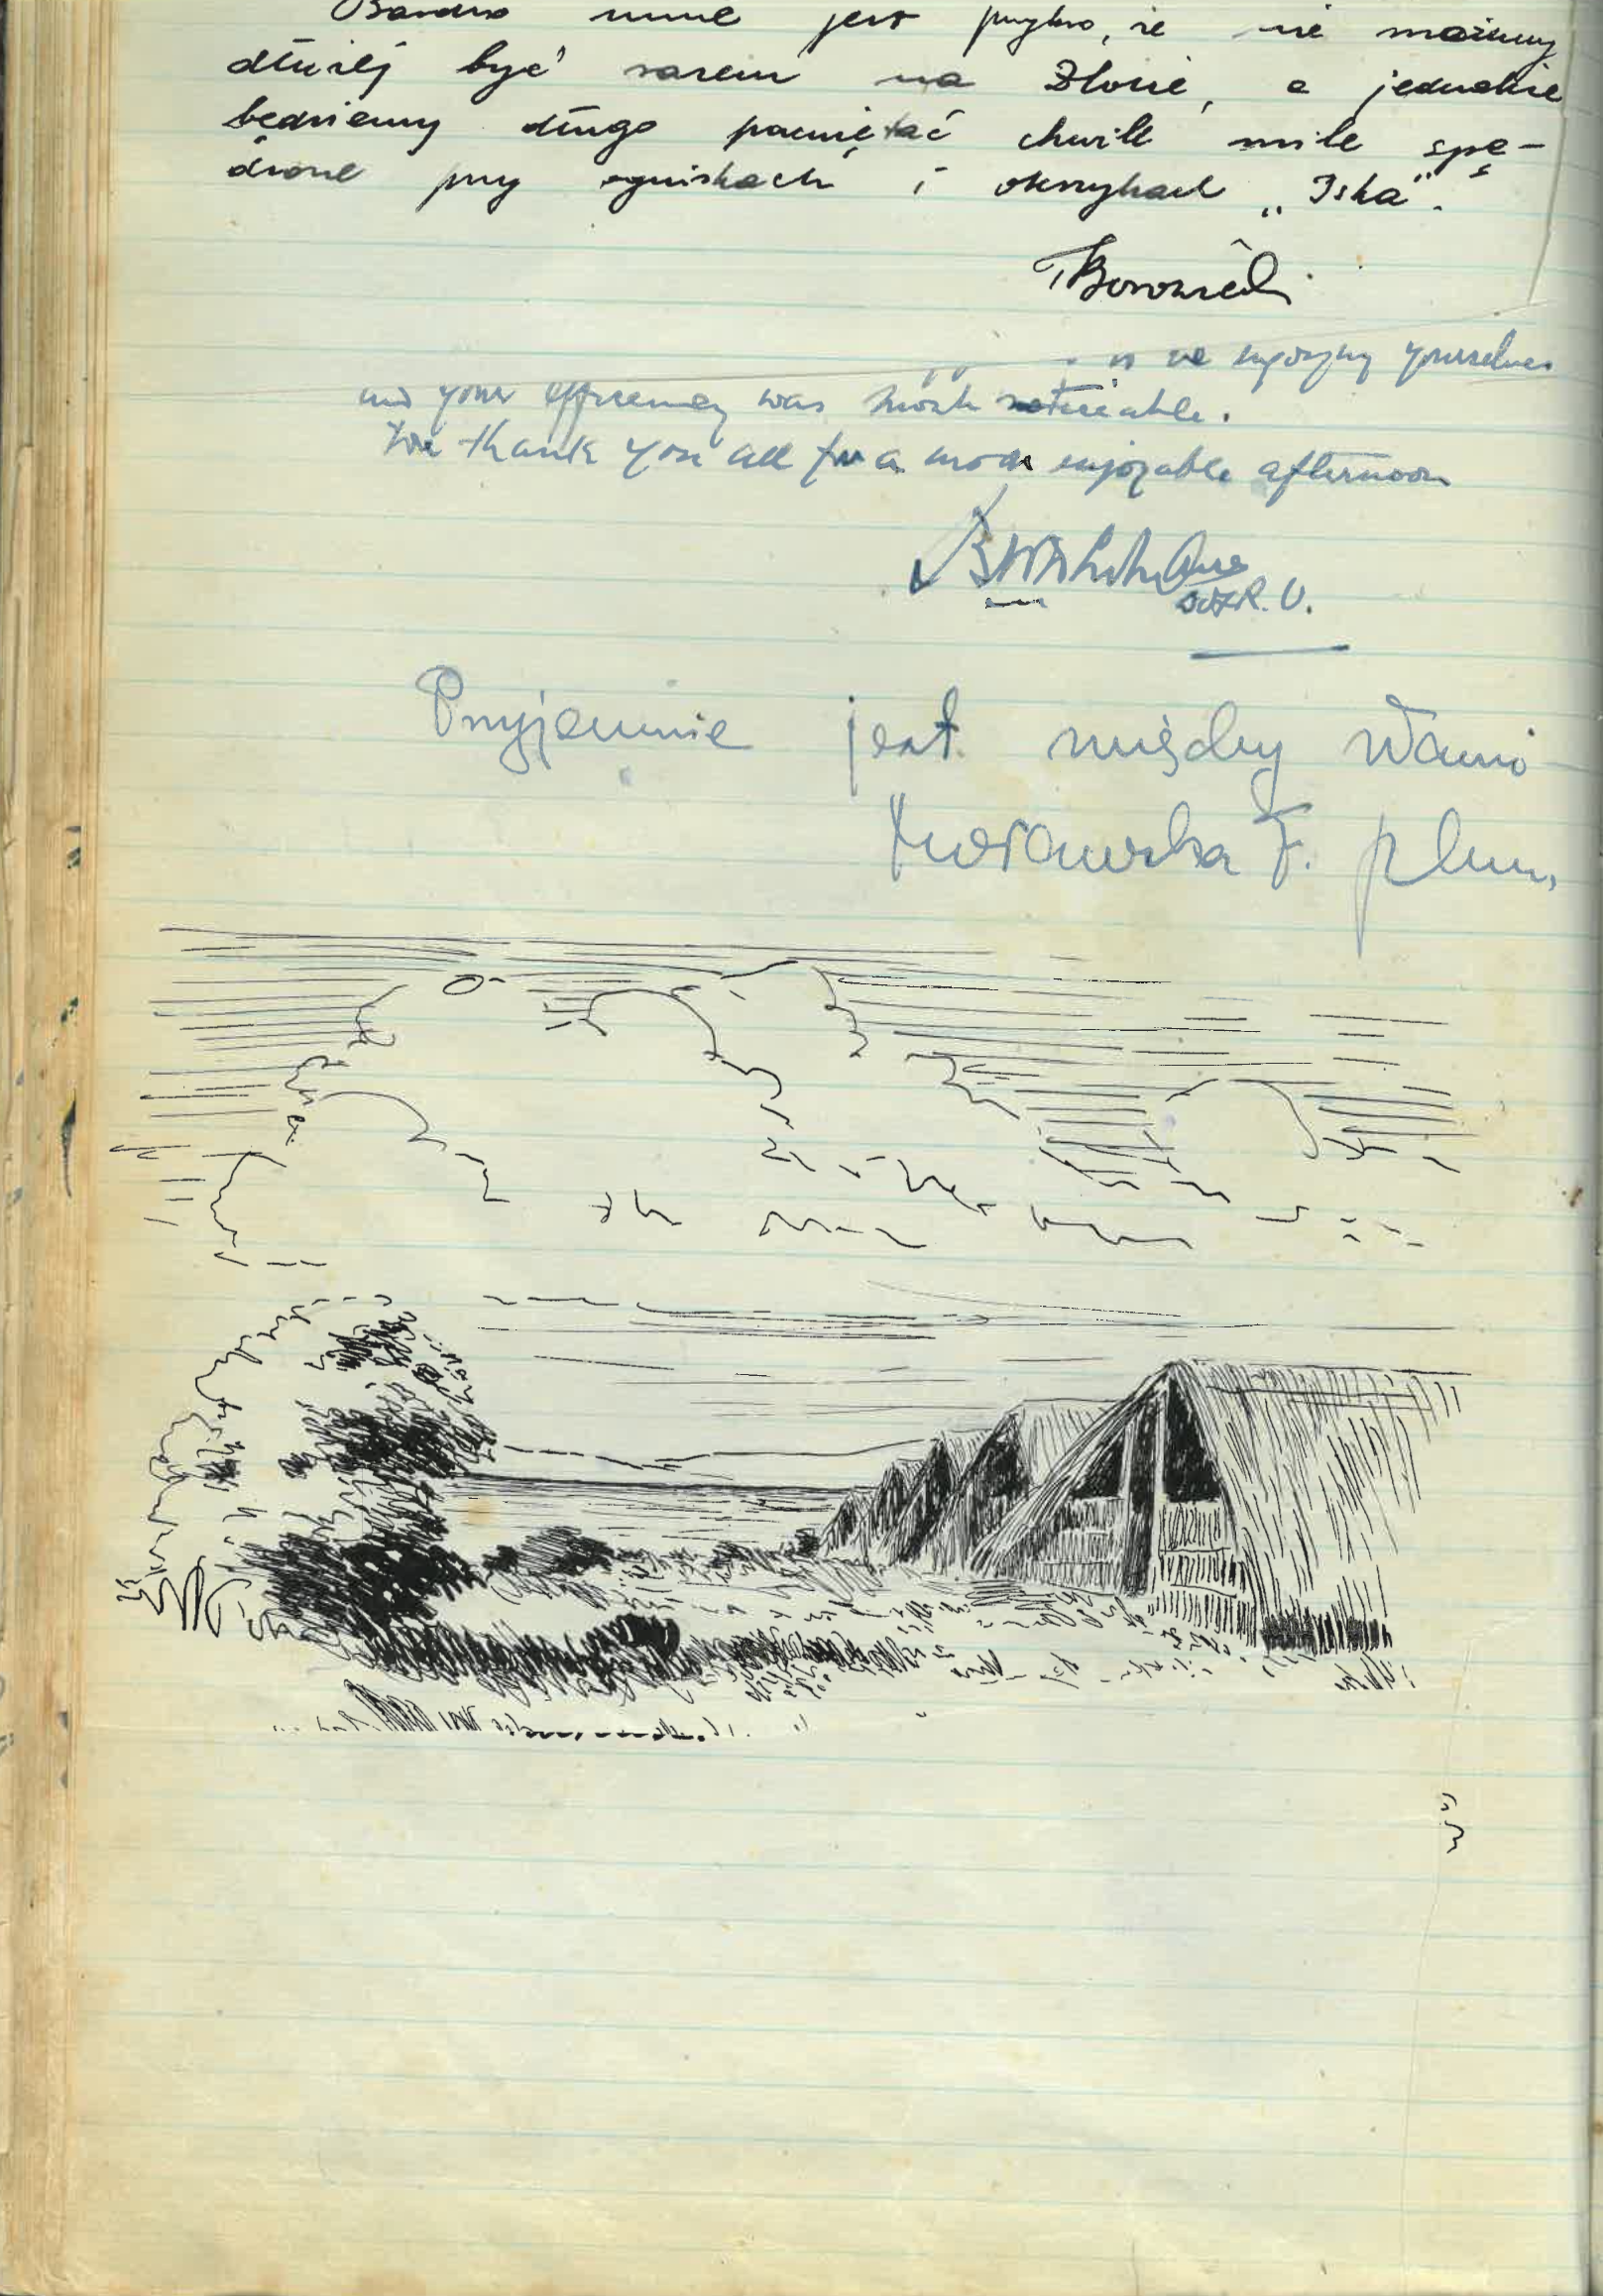 Bardzo mnie jest przykro, że nie możemy
dłużej być razem na Zlocie, a jednakże
będziemy długo pamiętać chwile mile spę-
dzone przy ogniskach i okrzykach „Iska".
we enjoying yourselves
and your efficiency was most noticeable.
We thank you all for a most enjoyable afternoon
Przyjemnie jest między Wami
F.